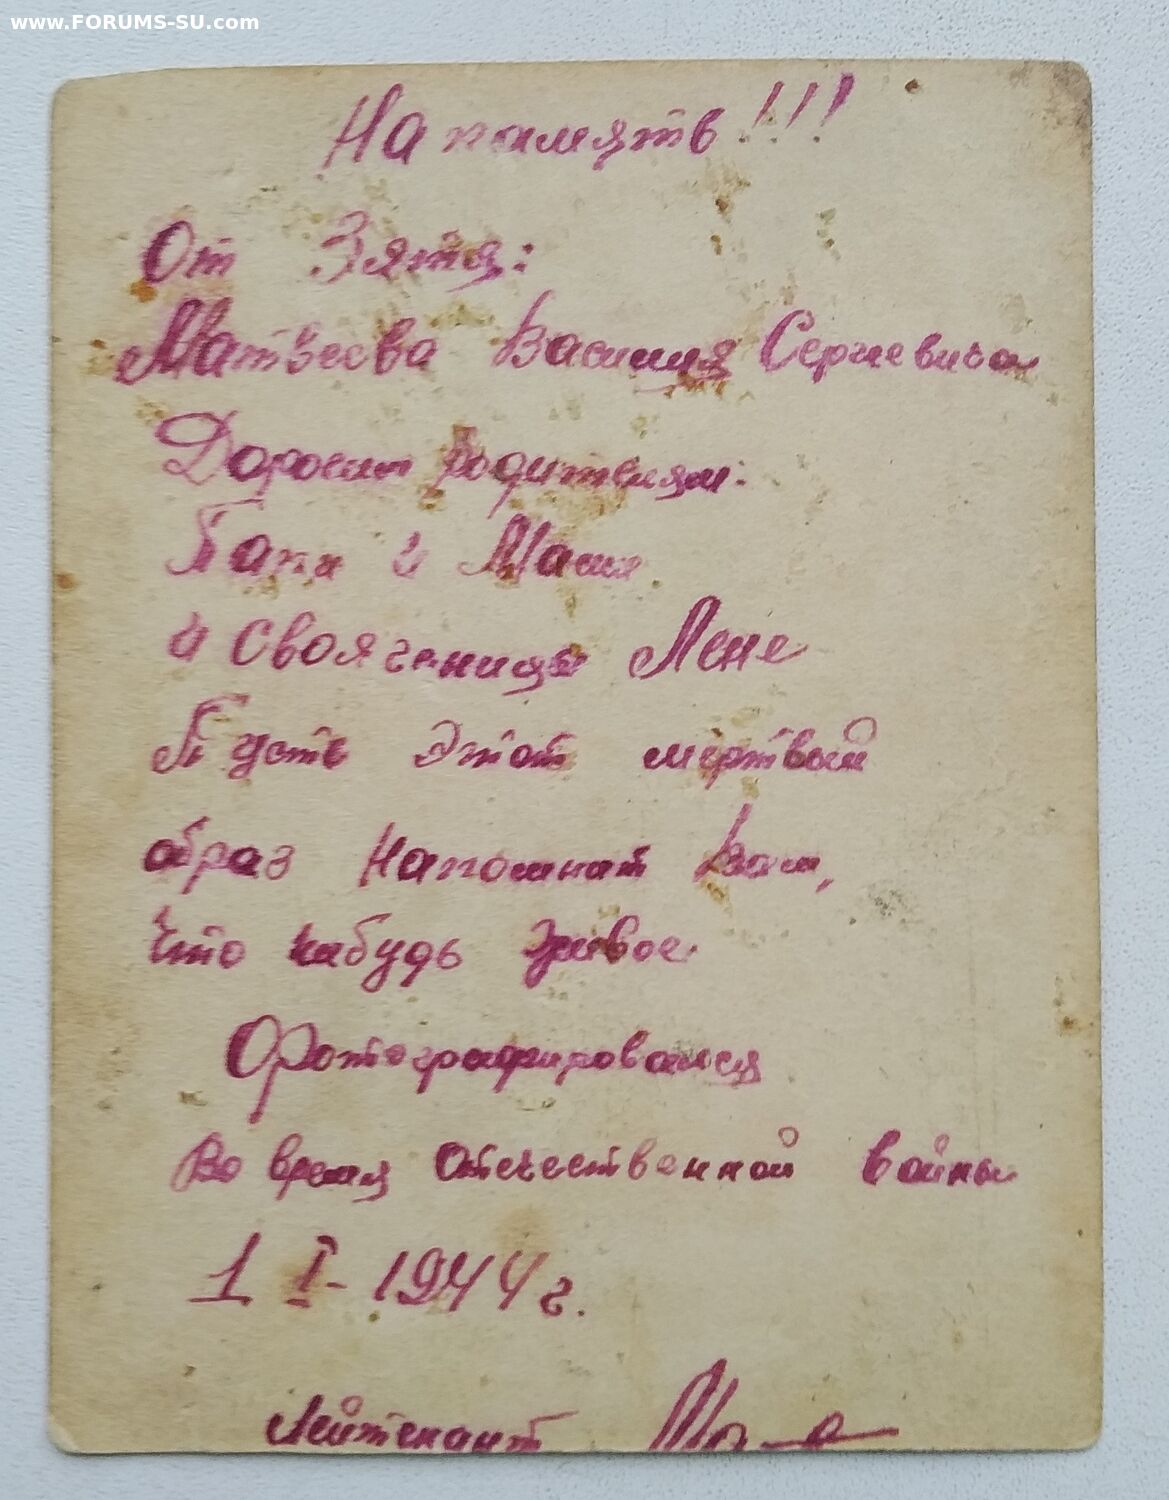 www.FORUMS-SU.com
На память!!!
От Зятя:
Матвеева Василия Сергиевича
Дорогим родителям:
Папи и Мами
и свояченицы Лене
Пусть этот мертвый
образ напомнит Вам,
Что нибудь живое
Фотографировался
Во время Отечественной войны
1 I-1944 г.
Лейтенант